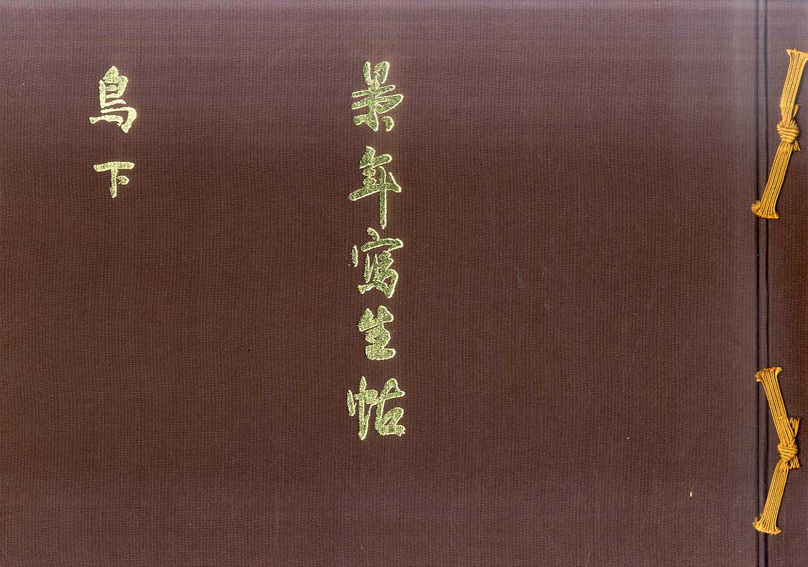 景年寫生帖
鳥下